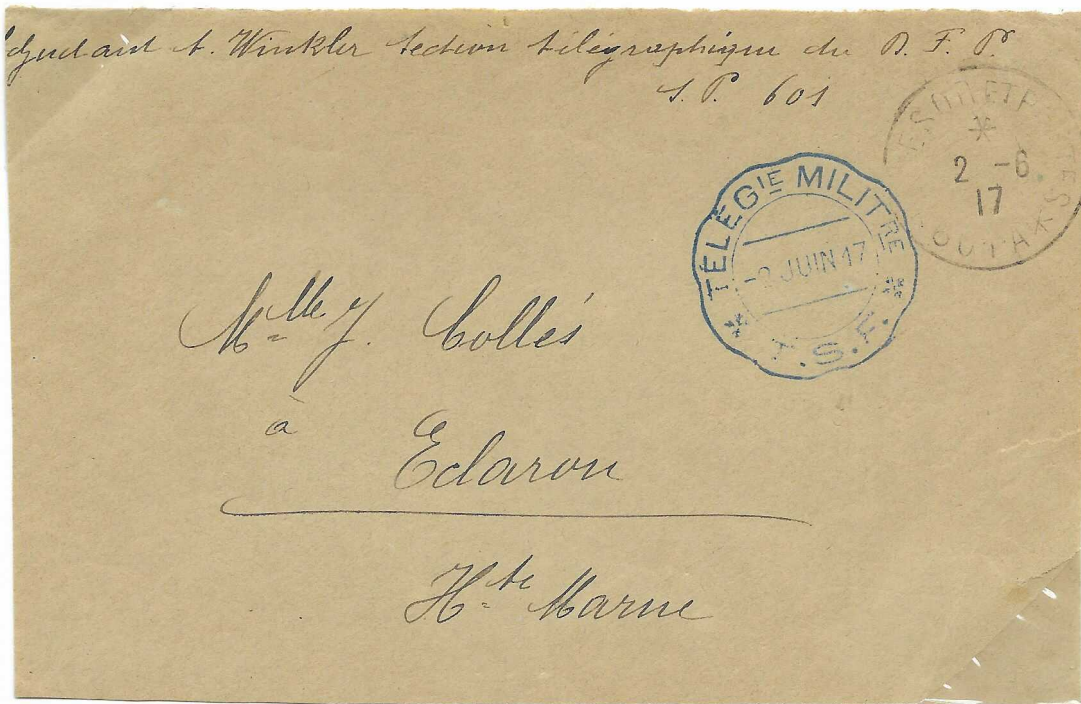 djudant A. Winkler Section télégraphique du D. F. P.
S. P. 601
TRESOR ET POSTES
*
2 -6.
17
TÉLÉGIE MILITRE
-2 JUIN 17
T.S.F.
Mlle J. Collés
à
Eclaron
Hte Marne